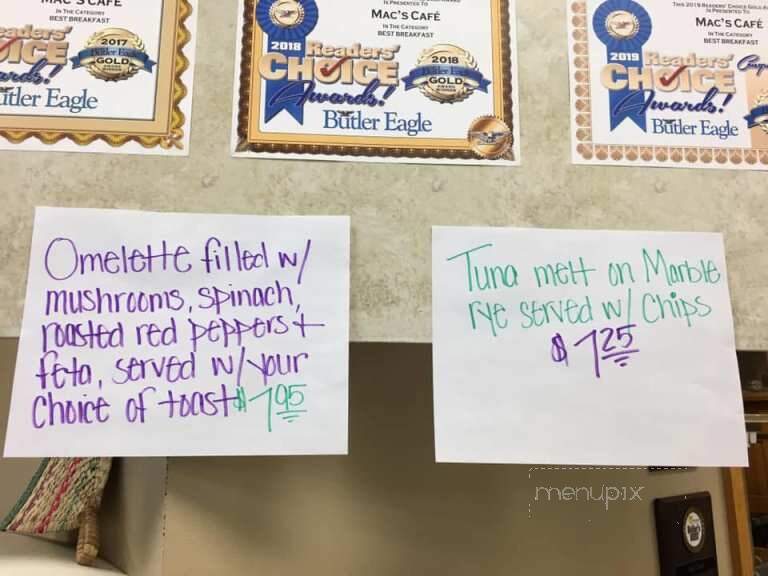 MAC'S CAFÉ
IN THE CATEGORY
BEST BREAKFAST
2017
Butler Eagle
GOLD
CHOICE
Awards!
Butler Eagle
IS PRESENTED TO
MAC'S CAFÉ
IN THE CATEGORY
BEST BREAKFAST
2018
Readers'
CHOICE
Awards!
Butler Eagle
2018
Butler Eagle
GOLD
THIS 2019 READERS' CHOICE GOLD
IS PRESENTED TO
MAC'S CAFÉ
IN THE CATEGORY
BEST BREAKFAST
2019
Readers'
CHOICE
Awards!
Butler Eagle
Omelette filled w/
mushrooms, spinach,
roasted red peppers +
feta, served w/ your
choice of toast $7.95
Tuna melt on Marble
rye served w/ Chips
$7.25
menupix